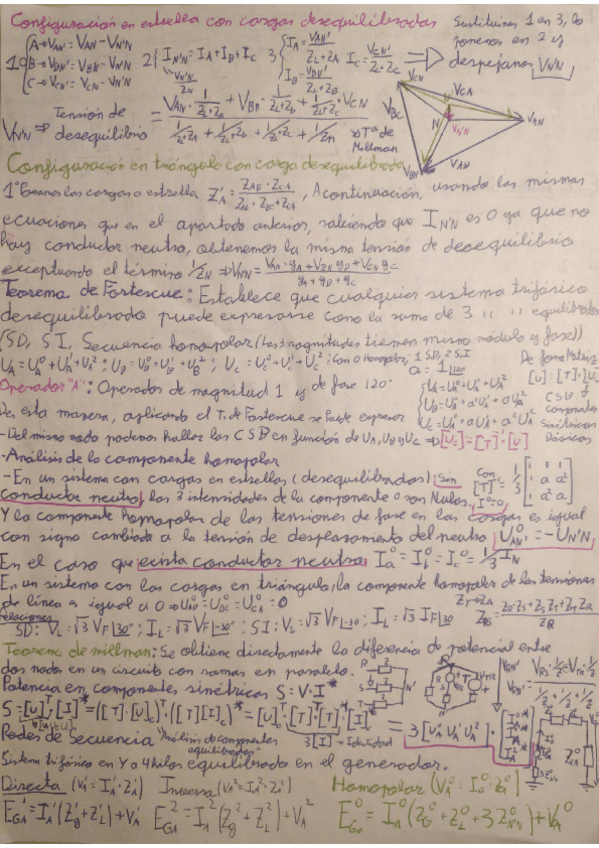 Configuración en estrella con cargas desequilibradas
Sustituimos 1 en 3, lo
ponemos en 2 y
despejamos V_N'N
1º { A→V_AN' = V_AN − V_N'N
B→V_BN' = V_BN − V_N'N
C→V_CN' = V_CN − V_N'N
2 { I_N'N = I_A + I_B + I_C
V_N'N/Z_N
3 { I_A = V_AN'/(Z_L+Z_A)
I_B = V_BN'/(Z_L+Z_B)
I_C = V_CN'/(Z_L+Z_C) ⇒
V_N'N ⇒ Tensión de desequilibrio = (V_AN · 1/(Z_L+Z_a) + V_BN · 1/(Z_L+Z_b) + 1/(Z_L+Z_c) · V_CN) / (1/(Z_L+Z_a) + 1/(Z_L+Z_b) + 1/(Z_L+Z_c) + 1/Z_N)
Tª de
Millman
V_CN V_CA V_BC N V_N'N V_AN V_BN V_AB
Configuración en triángulo con carga desequilibrada
1º Pasamos las cargas a estrella Z'_A = (Z_AB · Z_CA)/(Z_AB + Z_BC + Z_CA), A continuación, usando las mismas
ecuaciones que en el apartado anterior, sabiendo que I_N'N es 0 ya que no
hay conductor neutro, obtenemos la misma tensión de desequilibrio
exceptuando el término 1/Z_N ⇒ V_N'N = (V_AN · y_A + V_BN y_B + V_CN y_C)/(y_A + y_B + y_C)
Teorema de Fortescue: Establece que cualquier sistema trifásico
desequilibrado puede expresarse como la suma de 3 " " equilibrados
(SD, SI, Secuencia homopolar (Las 3 magnitudes tienen mismo módulo y fase))
U_A = U_A^0 + U_A^1 + U_A^2 ; U_B = U_B^0 + U_B^1 + U_B^2 ; U_C = U_C^0 + U_C^1 + U_C^2 ; Con 0 Homopolar, 1 SD, 2 SI
De forma Matriz
Operador "A": Operador de magnitud 1 y de fase 120º
a = 1|120
{ U_A = U_A^0 + U_A^1 + U_A^2
U_B = U_A^0 + a²U_A^1 + aU_A^2
U_C = U_A^0 + aU_A^1 + a²U_A^2
[U] = [T]·[U_C]
CSB
componentes
Simétricas
Básicas
De esta manera, aplicando el T. de Fortescue se puede expresar
-Del mismo modo podemos hallar las CSB en función de U_A, U_B y U_C ⇒ [U_C] = [T]⁻¹·[U]
-Análisis de la componente homopolar
-En un sistema con cargas en estrella (desequilibradas): Sin
conductor neutro, las 3 intensidades de la componente 0 son Nulas. I^0=0
Con [T]⁻¹ = 1/3 [1 1 1; 1 a a²; 1 a² a]
Y la componente homopolar de las tensiones de fase en las cargas es igual
con signo cambiado a la tensión de desplazamiento del neutro U_AN'^0 = −U_N'N
En el caso que exista conductor neutro I_a^0 = I_b^0 = I_c^0 = 1/3 I_N
En un sistema con las cargas en triángulo, la componente homopolar de las tensiones
de línea es igual a 0 ⇒ U_AB^0 = U_BC^0 = U_CA^0 = 0
Relaciones
SD: V_L = √3 V_F|30º ; I_L = √3 I_F|-30º ; SI: V_L = √3 V_F|-30º ; I_L = √3 I_F|30º
Teorema de millman: Se obtiene directamente la diferencia de potencial entre
dos nodos en un circuito con ramas en paralelo.
Potencia en componentes simétricas S = V·I*
S = [U]^T·[I]* = ([T]·[U]_C)^T·([T][I]_C)* = [U]_C^T·[T]^T·[T]*[I]* = 3[U_A^0 U_A^1 U_A^2]·[I_A^0* I_A^1* I_A^2*]
3[I] → Identidad
Redes de Secuencia "Análisis de componentes
equilibrados"
Sistema trifásico en Y a 4 hilos equilibrado en el generador.
Directa (V_A^1 = I_A^1 · Z_A^1)
Inversa (V_A^2 = I_A^2 · Z_A^2)
Homopolar (V_A^0 = I_A^0 · Z_A^0)
E_GA^1 = I_A^1 (Z_g^1 + Z_L^1) + V_A^1
E_GA^2 = I_A^2 (Z_g^2 + Z_L^2) + V_A^2
E_GA^0 = I_A^0 (Z_G^0 + Z_L^0 + 3Z_N'N^0) + V_A^0